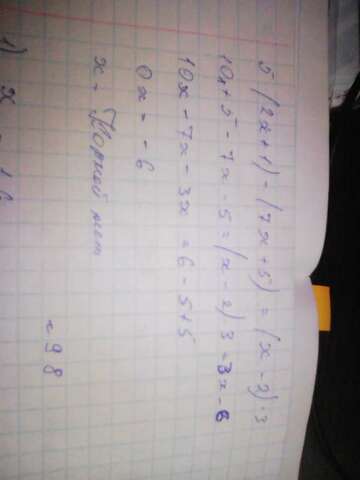 5 (2x+1) - (7x+5) = (x-2)·3
10x+5-7x-5=(x-2)3=3x-6
10x-7x-3x=6-5+5
0x=-6
x= Корней нет
№98
1) x